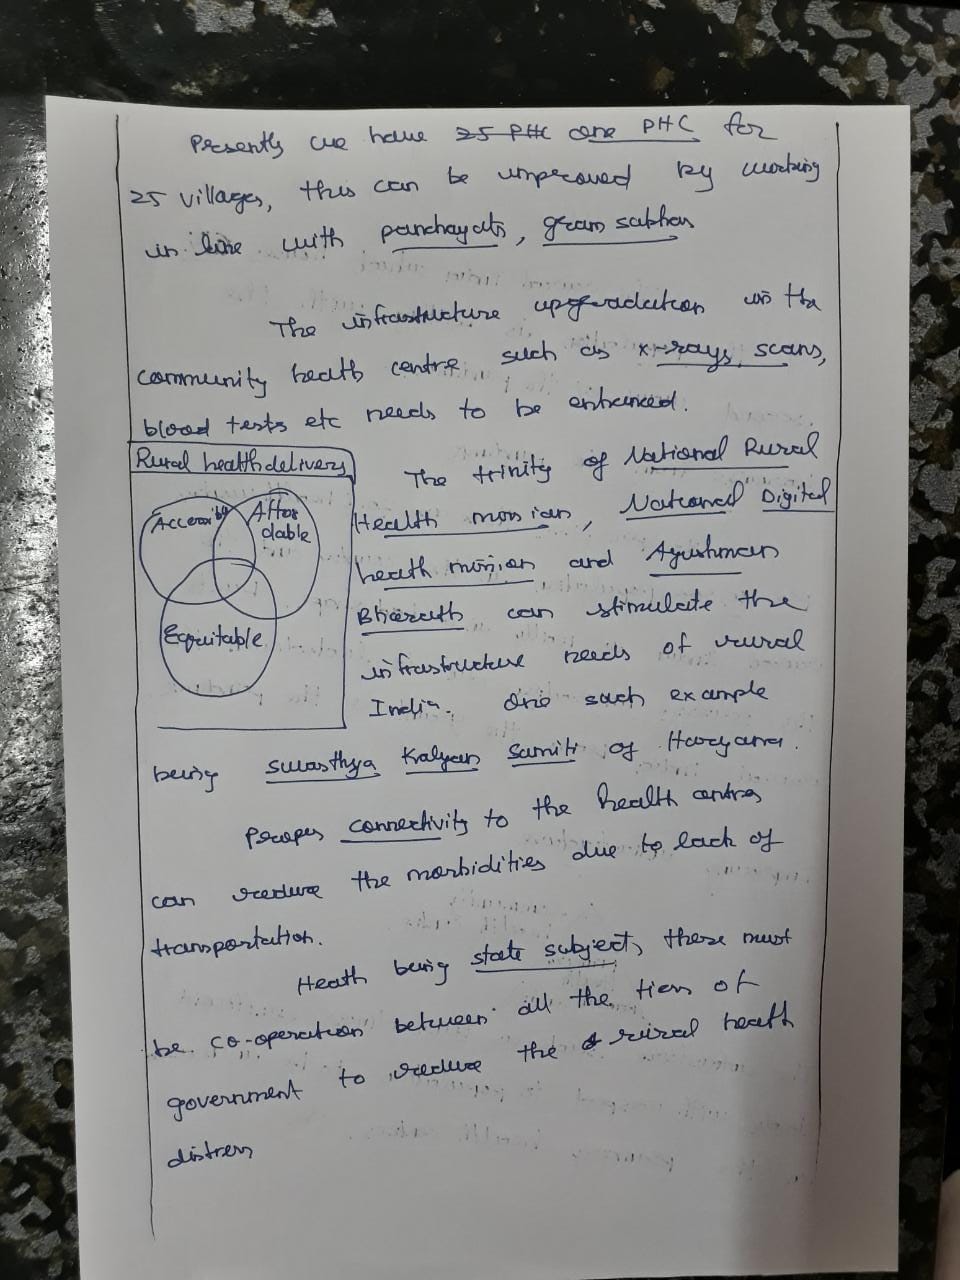 Presently we have 25 PHC one PHC for
25 villages, this can be improved by working
in line with panchayats, gram sabhas
The infrastructure upgradation in the
community health centre such as x-rays, scans,
blood tests etc needs to be enhanced.
Rural health delivery
Accessibly
Affor
dable
Equitable
The trinity of National Rural
Health mission, National Digital
health mission and Ayushman
Bharath can stimulate the
infrastructure needs of rural
India. One such example
being swasthya Kalyan Samiti of Haryana.
Proper connectivity to the health centres
can reduce the morbidities due to lack of
transportation.
Heath being state subject, there must
be co-operation between all the tiers of
government to reduce the rural health
distress